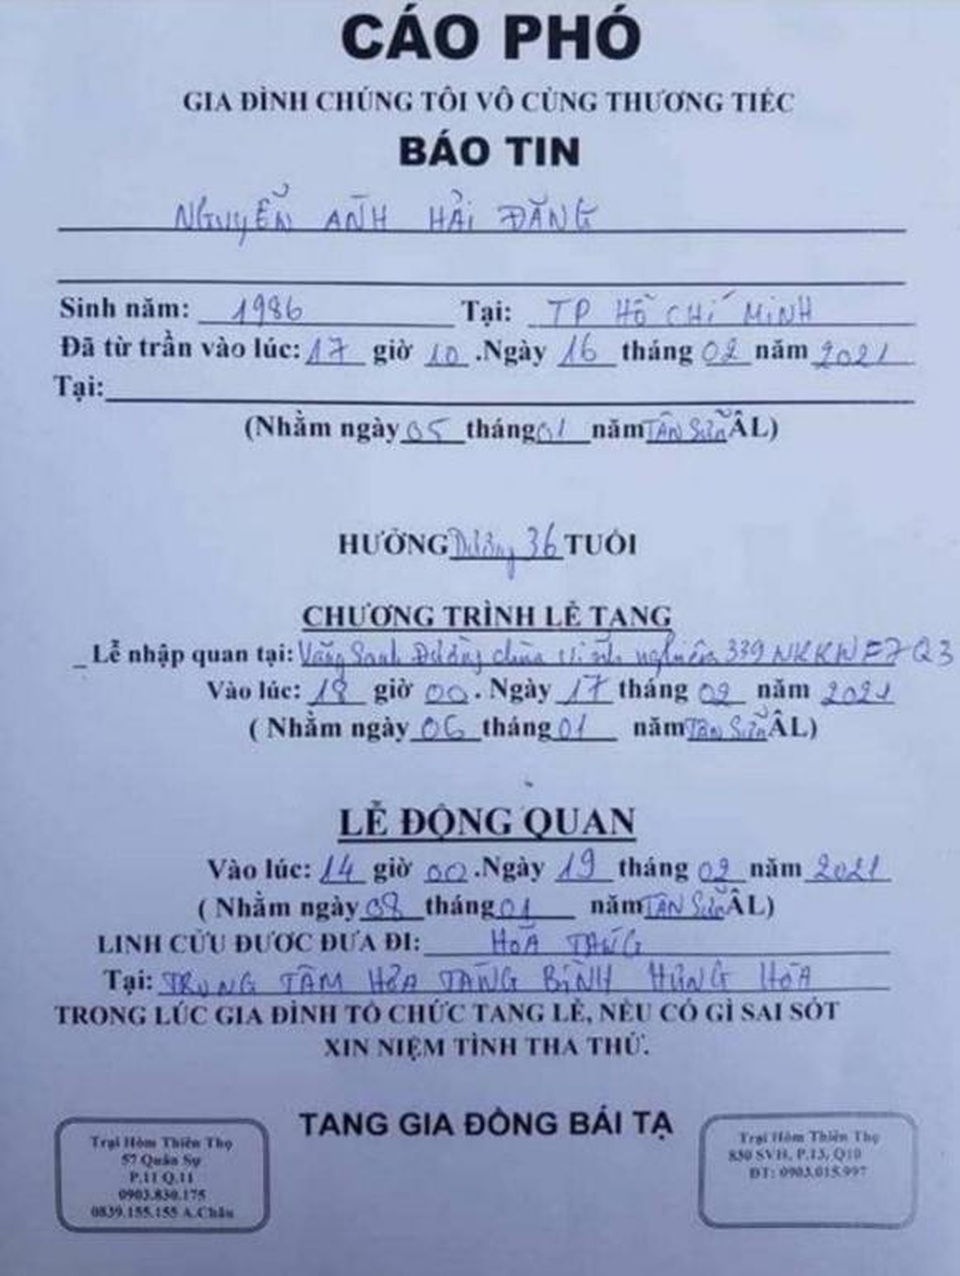 CÁO PHÓ
GIA ĐÌNH CHÚNG TÔI VÔ CÙNG THƯƠNG TIẾC
BÁO TIN
NGUYỄN ANH HẢI ĐĂNG
Sinh năm: 1986 Tại: TP HỒ CHÍ MINH
Đã từ trần vào lúc: 17 giờ 10 .Ngày 16 tháng 02 năm 2021
Tại:
(Nhằm ngày 05 tháng 01 năm TÂN Sửu ÂL)
HƯỞNG Dương 36 TUỔI
CHƯƠNG TRÌNH LỄ TANG
Lễ nhập quan tại: Vãng Sanh Đường chùa Vĩnh nghiêm 339 NKKN F7 Q3
Vào lúc: 18 giờ 00 . Ngày 17 tháng 02 năm 2021
( Nhằm ngày 06 tháng 01 năm TÂN Sửu ÂL)
LỄ ĐỘNG QUAN
Vào lúc: 14 giờ 00 .Ngày 19 tháng 02 năm 2021
( Nhằm ngày 08 tháng 01 năm TÂN Sửu ÂL)
LINH CỬU ĐƯỢC ĐƯA ĐI: HOẢ TÁNG
Tại: TRUNG TÂM HỎA TÁNG BÌNH HƯNG HÒA
TRONG LÚC GIA ĐÌNH TỔ CHỨC TANG LỄ, NẾU CÓ GÌ SAI SÓT
XIN NIỆM TÌNH THA THỨ.
TANG GIA ĐỒNG BÁI TẠ
Trại Hòm Thiên Thọ
57 Quân Sự
P.11 Q.11
0903.830.175
0839.155.155 A.Châu
Trại Hòm Thiên Thọ
830 SVH, P.13, Q10
ĐT: 0903.015.997